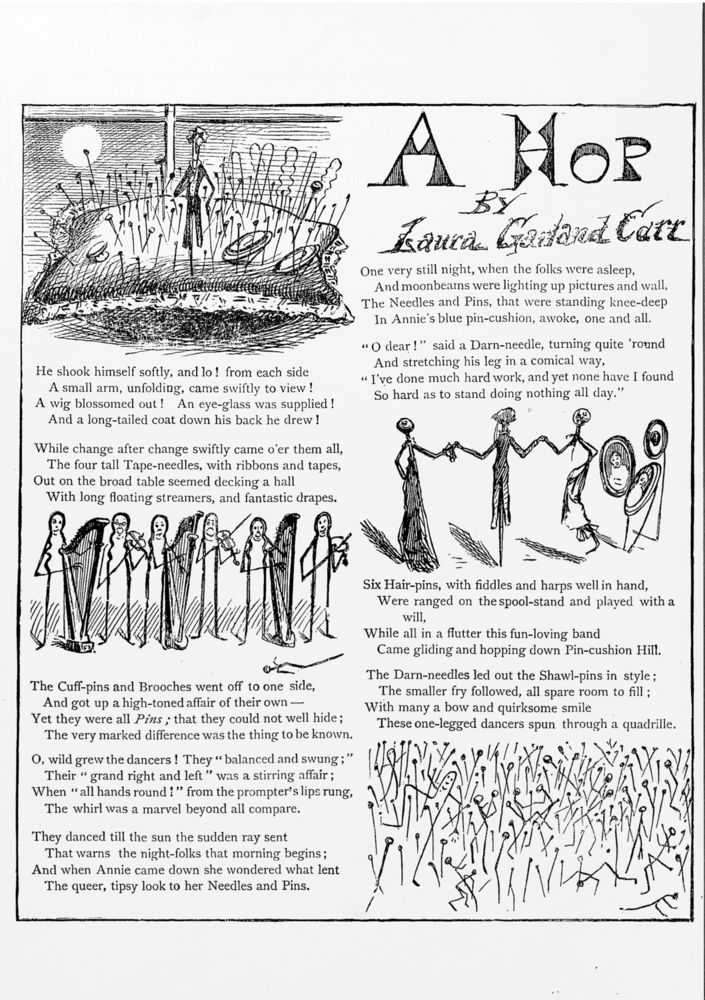 A HOP
BY
Laura Garland Carr
One very still night, when the folks were asleep,
And moonbeams were lighting up pictures and wall,
The Needles and Pins, that were standing knee-deep
In Annie's blue pin-cushion, awoke, one and all.
“O dear!” said a Darn-needle, turning quite 'round
And stretching his leg in a comical way,
“I've done much hard work, and yet none have I found
So hard as to stand doing nothing all day.”
He shook himself softly, and lo! from each side
A small arm, unfolding, came swiftly to view!
A wig blossomed out! An eye-glass was supplied!
And a long-tailed coat down his back he drew!
While change after change swiftly came o'er them all,
The four tall Tape-needles, with ribbons and tapes,
Out on the broad table seemed decking a hall
With long floating streamers, and fantastic drapes.
Six Hair-pins, with fiddles and harps well in hand,
Were ranged on the spool-stand and played with a
will,
While all in a flutter this fun-loving band
Came gliding and hopping down Pin-cushion Hill.
The Darn-needles led out the Shawl-pins in style;
The smaller fry followed, all spare room to fill;
With many a bow and quirksome smile
These one-legged dancers spun through a quadrille.
The Cuff-pins and Brooches went off to one side,
And got up a high-toned affair of their own—
Yet they were all Pins; that they could not well hide;
The very marked difference was the thing to be known.
O, wild grew the dancers! They “balanced and swung;”
Their “grand right and left” was a stirring affair;
When “all hands round!” from the prompter's lips rung,
The whirl was a marvel beyond all compare.
They danced till the sun the sudden ray sent
That warns the night-folks that morning begins;
And when Annie came down she wondered what lent
The queer, tipsy look to her Needles and Pins.